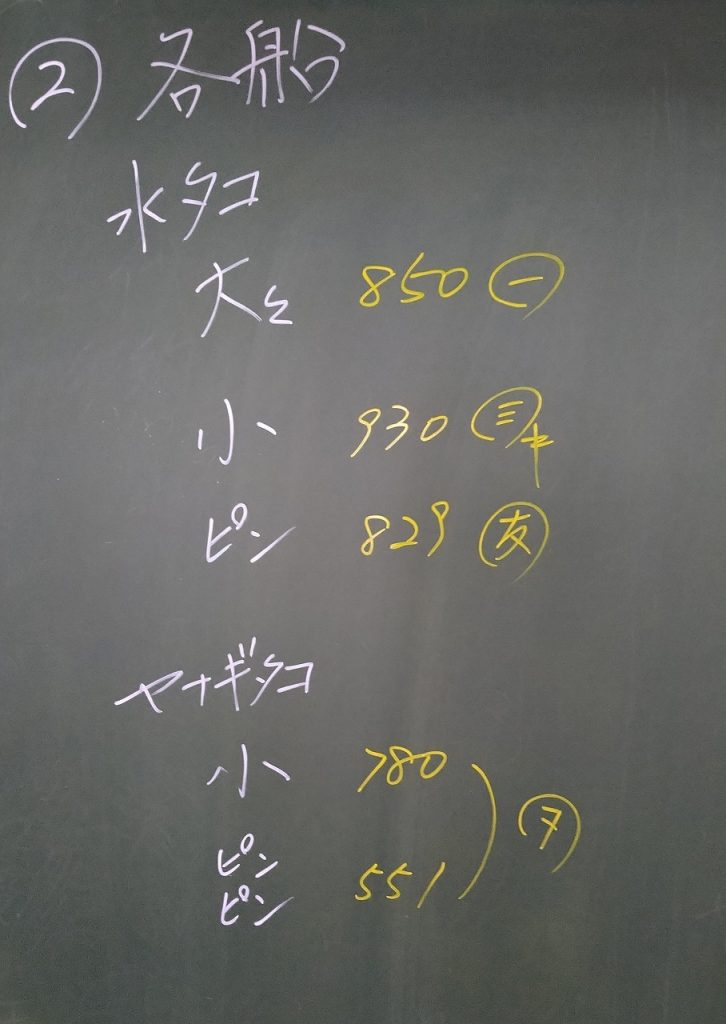 ② 各船
水タコ
大 850 ㊀
小 930 ㊂
ピン 829 友
ヤナギタコ
小 780
ピン
ピン 551